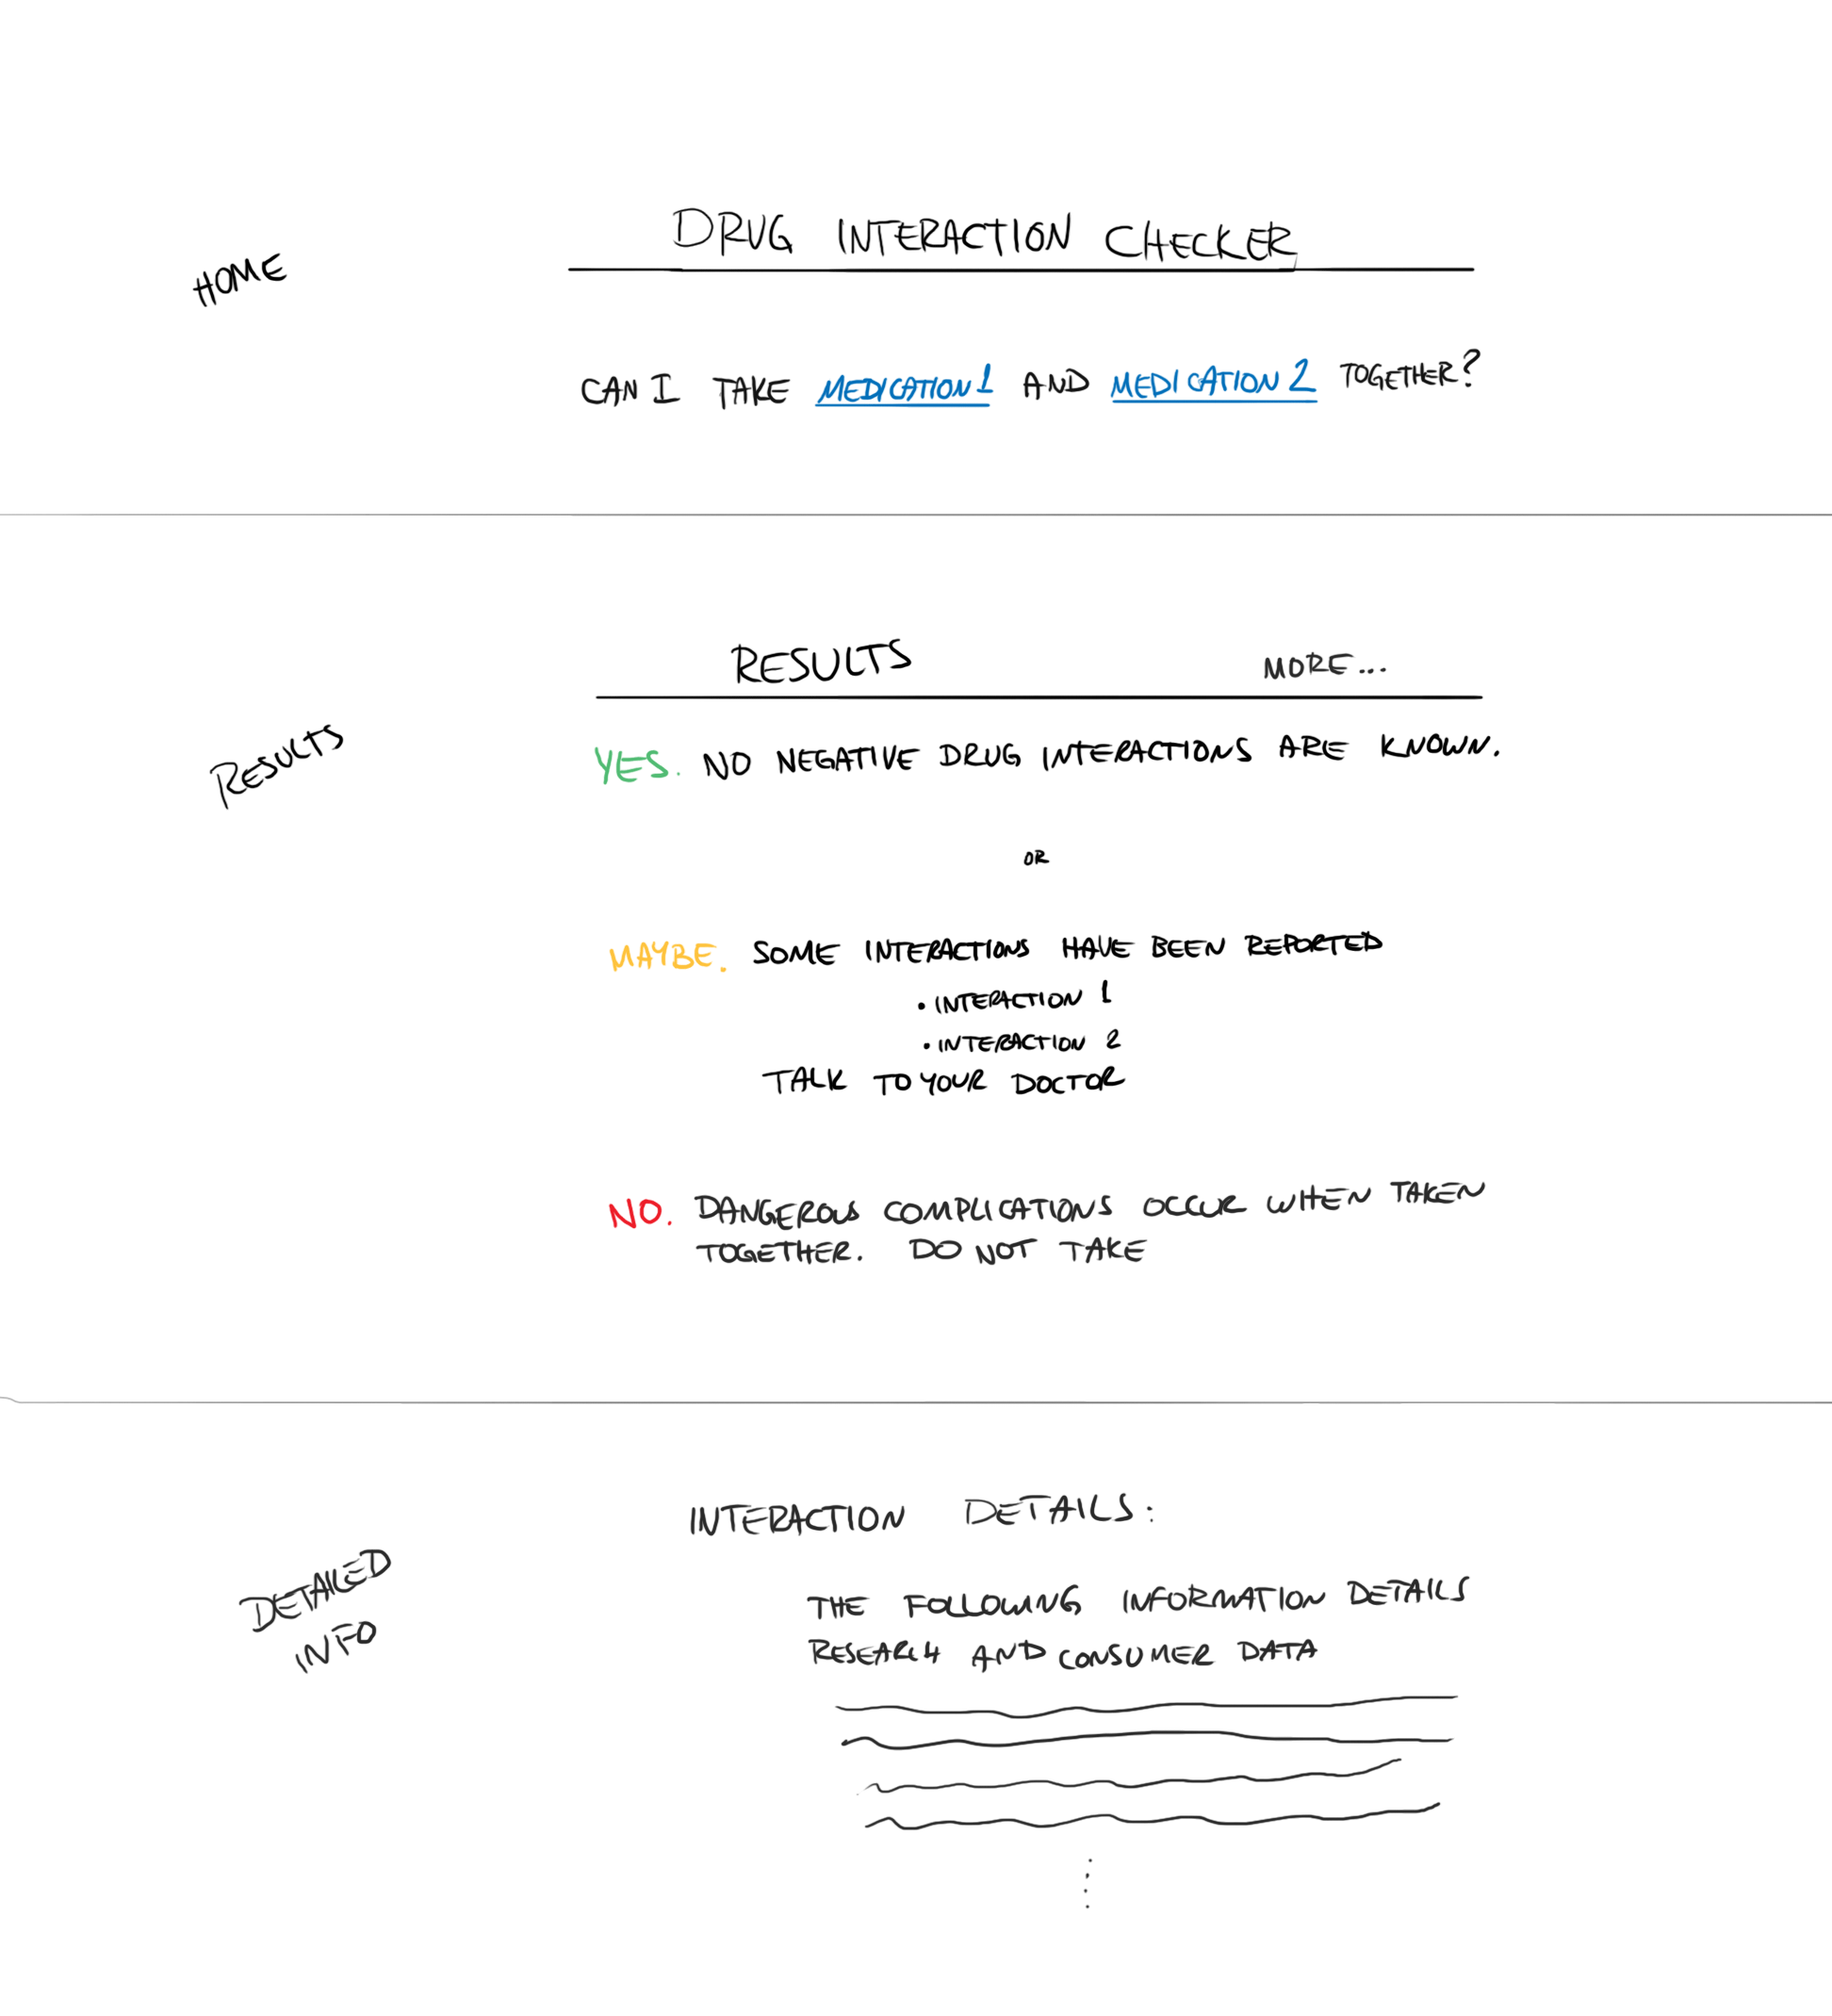 DRUG INTERACTION CHECKER
HOME
CAN I TAKE MEDICATION 1 AND MEDICATION 2 TOGETHER?
RESULTS MORE...
RESULTS
YES. NO NEGATIVE DRUG INTERACTIONS ARE KNOWN.
OR
MAYBE. SOME INTERACTIONS HAVE BEEN REPORTED
• INTERACTION 1
• INTERACTION 2
TALK TO YOUR DOCTOR
NO. DANGEROUS COMPLICATIONS OCCUR WHEN TAKEN
TOGETHER. DO NOT TAKE
INTERACTION DETAILS:
DETAILED
INFO
THE FOLLOWING INFORMATION DETAILS
RESEARCH AND CONSUMER DATA